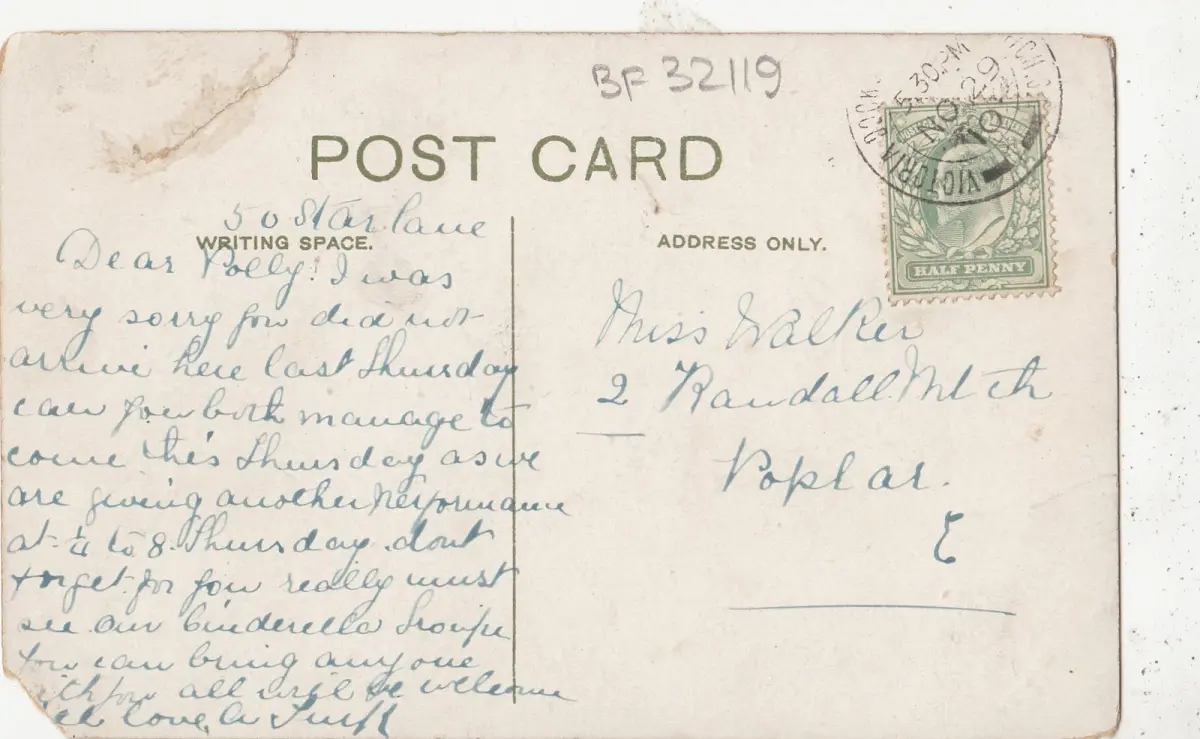 BF 32119
POST CARD
VICTORIA DOCK
5.30 PM
NO 29
10
HALF PENNY
WRITING SPACE.
ADDRESS ONLY.
50 Star lane
Dear Polly! I was
very sorry you did not
arrive here last Thursday
can you both manage to
come this Thursday as we
are giving another Performance
at ¼ to 8. Thursday. dont
forget for you really must
see our Cinderella Troupe
You can bring anyone
with you all will be welcome
love, A
Miss Walker
2 Randall
Poplar.
E